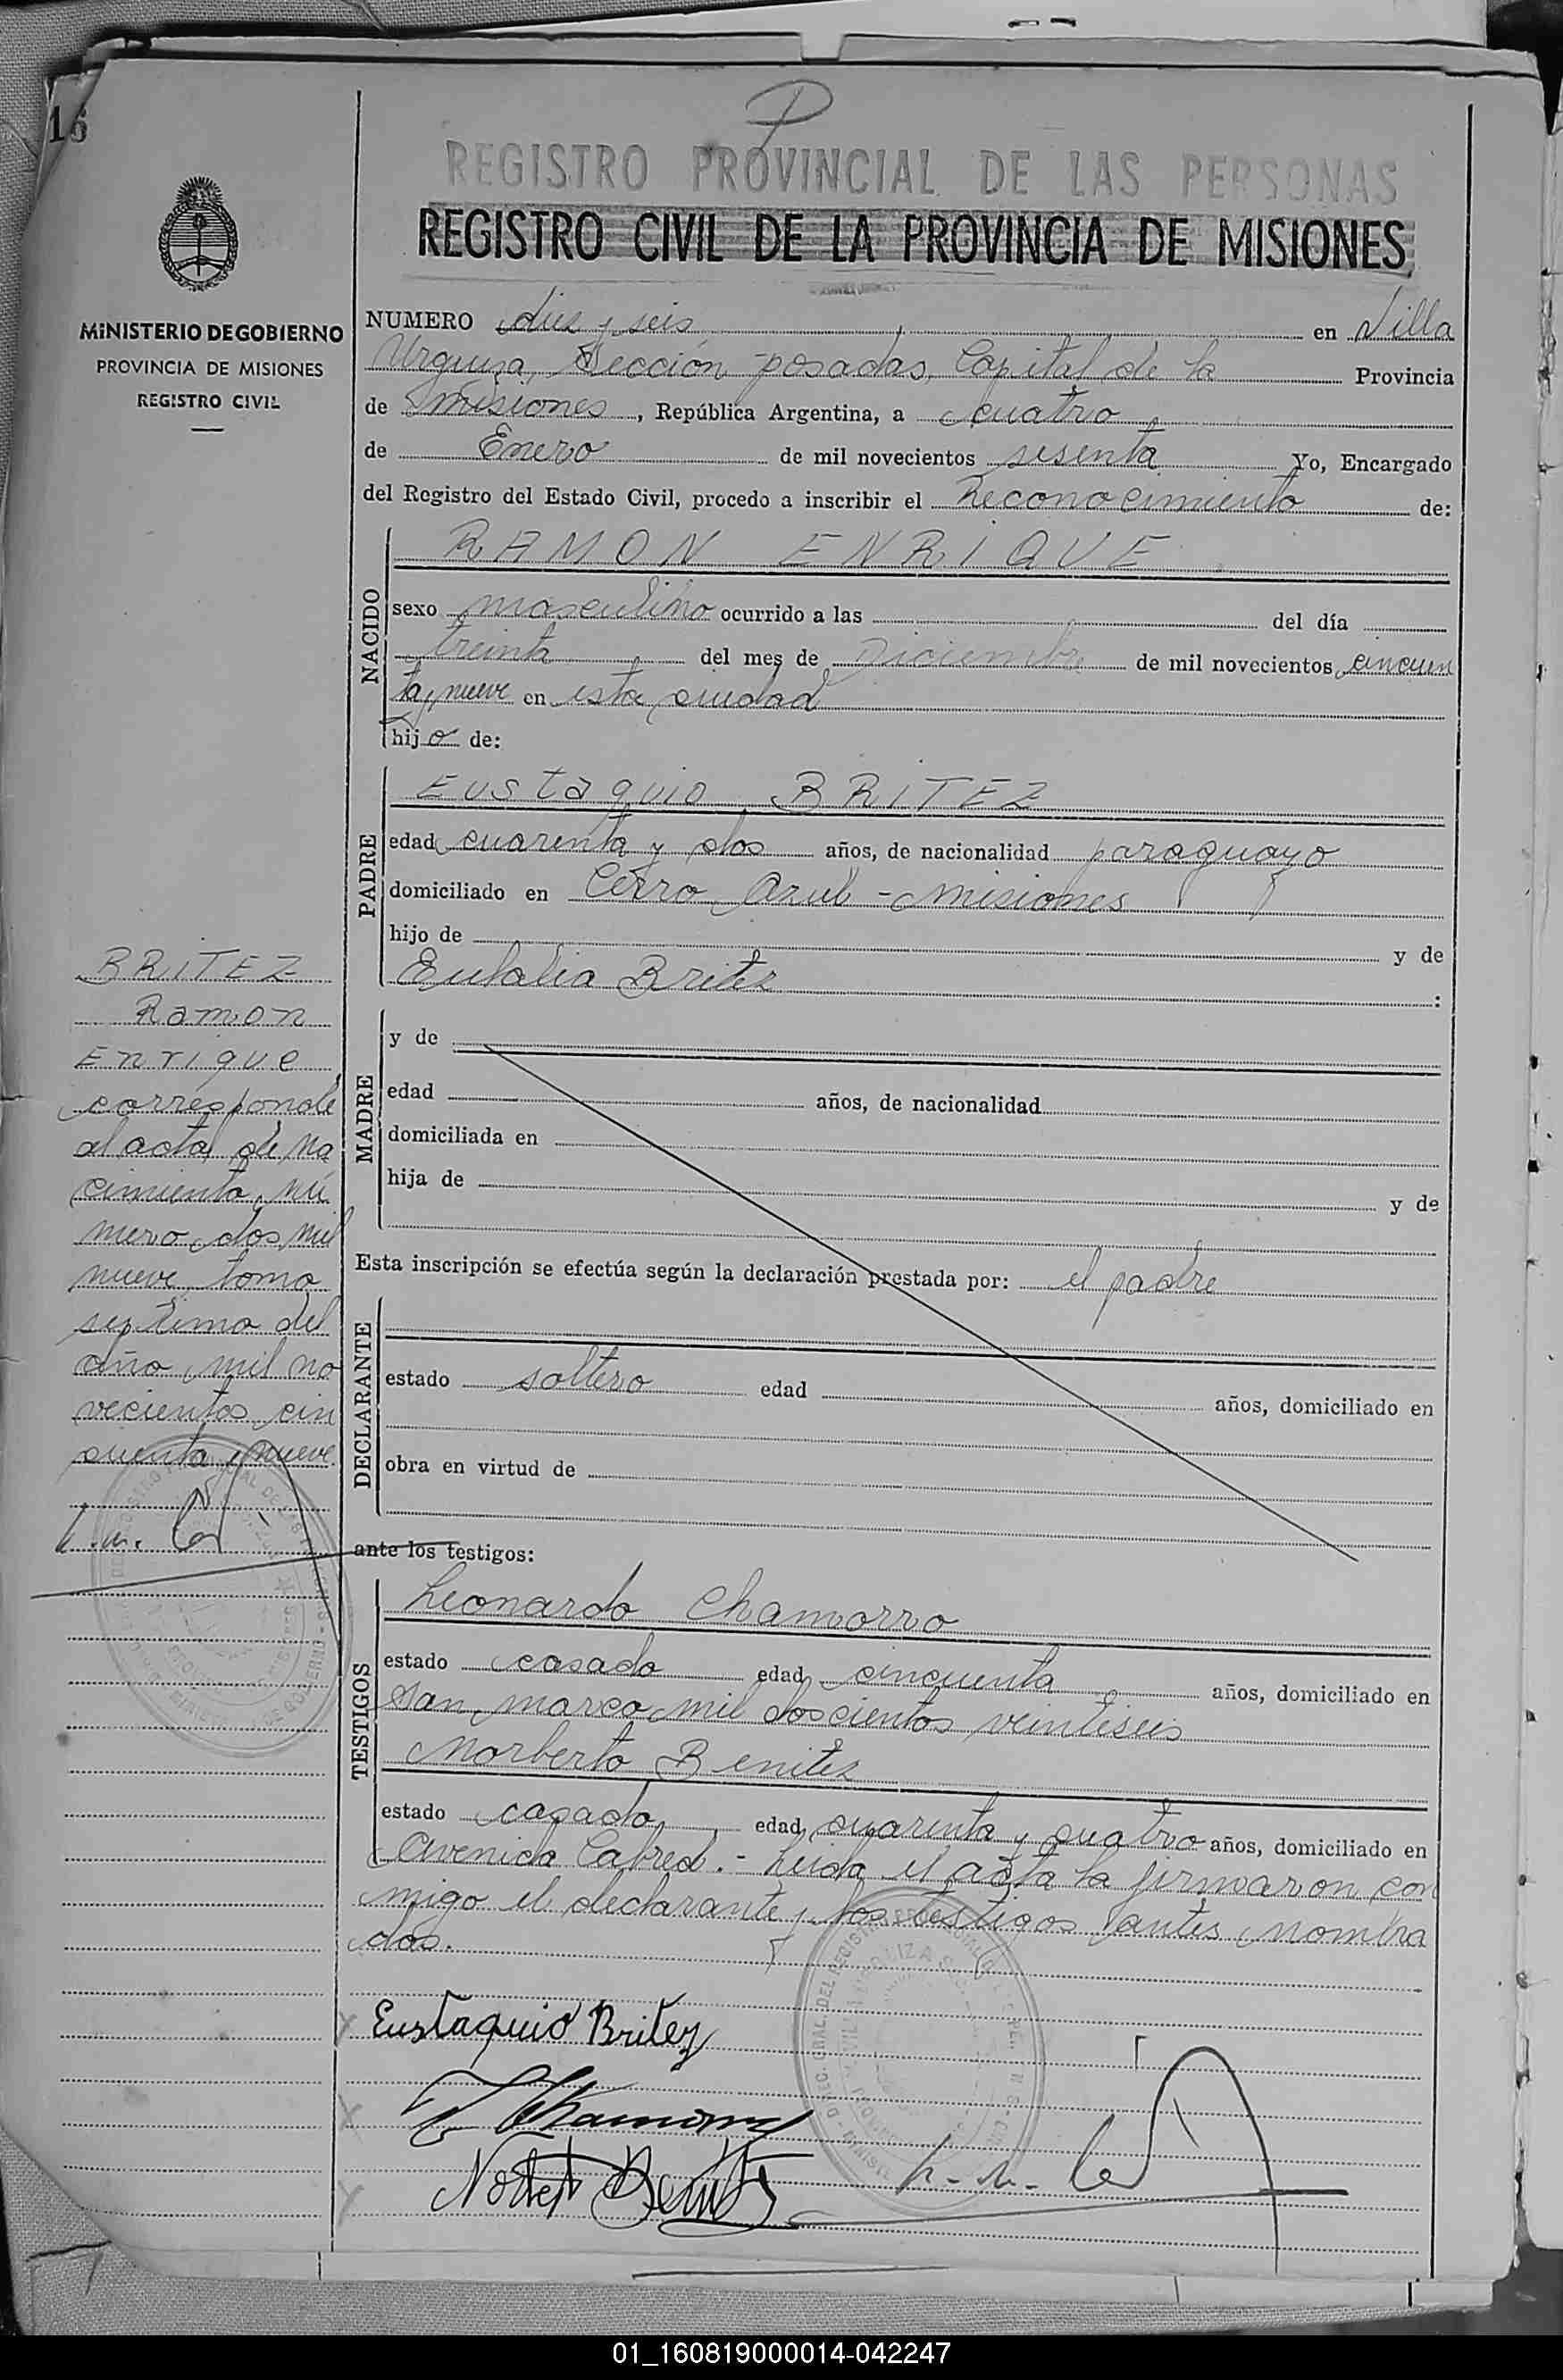 16
REGISTRO PROVINCIAL DE LAS PERSONAS
REGISTRO CIVIL DE LA PROVINCIA DE MISIONES
MINISTERIO DE GOBIERNO
PROVINCIA DE MISIONES
REGISTRO CIVIL
NUMERO diez y seis en Villa
Urquiza, Sección posadas, Capital de la Provincia
de misiones, República Argentina, a cuatro
de Enero de mil novecientos sesenta Yo, Encargado
del Registro del Estado Civil, procedo a inscribir el Reconocimiento de:
NACIDO
RAMON ENRIQUE
sexo masculino ocurrido a las del día
treinta del mes de Diciembre de mil novecientos cincuen
ta y nueve en esta ciudad
hijo de:
PADRE
Eustaquio BRITEZ
edad cuarenta y dos años, de nacionalidad paraguayo
domiciliado en Cerro Azul - misiones
hijo de y de
Eulalia Britez :
MADRE
y de
edad años, de nacionalidad
domiciliada en
hija de y de
Esta inscripción se efectúa según la declaración prestada por: el padre
DECLARANTE
estado soltero edad años, domiciliado en
obra en virtud de
ante los testigos:
TESTIGOS
Leonardo Chamorro
estado casado edad cincuenta años, domiciliado en
San marco mil doscientos veintiseis
Norberto Benitez
estado casado, edad cuarenta y cuatro años, domiciliado en
Avenida Cabred. - Leida el acta la firmaron con
migo el declarante y los testigos antes nombra
dos.
Eustaquio Britez
Chamorro
Norberto Benitez
BRITEZ
Ramon
Enrique
corresponde
al acta de na
cimiento nú
mero dos mil
nueve tomo
septimo del
año mil no
vecientos cin
cuenta y nueve
01_160819000014-042247